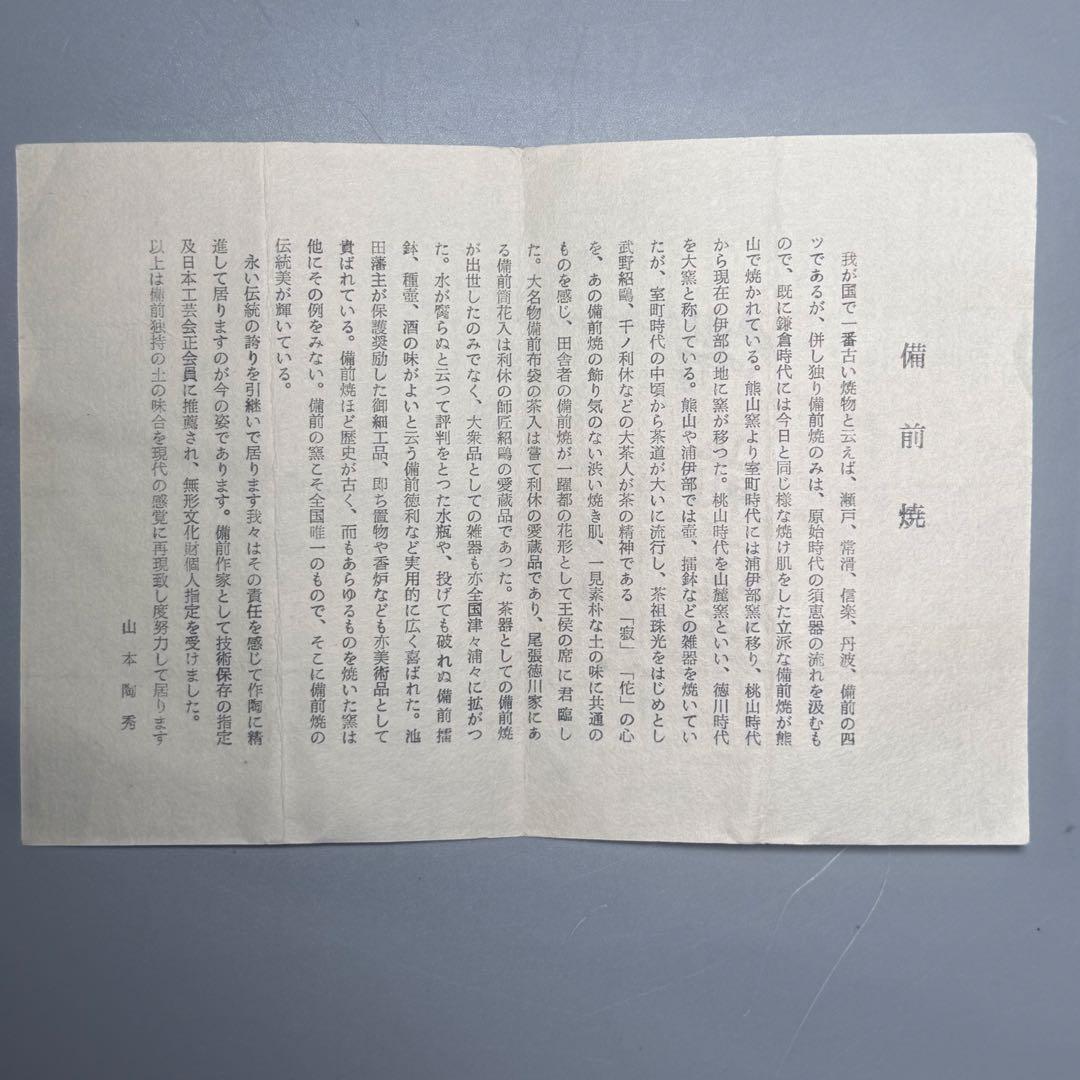 備前焼
我が国で一番古い焼物と云えば、瀬戸、常滑、信楽、丹波、備前の四
ツであるが、併し独り備前焼のみは、原始時代の須恵器の流れを汲むも
ので、既に鎌倉時代には今日と同じ様な焼け肌をした立派な備前焼が熊
山で焼かれている。熊山窯より室町時代には浦伊部窯に移り、桃山時代
から現在の伊部の地に窯が移つた。桃山時代を山麓窯といい、徳川時代
を大窯と称している。熊山や浦伊部では壺、擂鉢などの雑器を焼いてい
たが、室町時代の中頃から茶道が大いに流行し、茶祖珠光をはじめとし
武野紹鷗、千ノ利休などの大茶人が茶の精神である「寂」「侘」の心
を、あの備前焼の飾り気のない渋い焼き肌、一見素朴な土の味に共通の
ものを感じ、田舎者の備前焼が一躍都の花形として王侯の席に君臨し
た。大名物備前布袋の茶入は嘗て利休の愛蔵品であり、尾張徳川家にあ
る備前筒花入は利休の師匠紹鷗の愛蔵品であつた。茶器としての備前焼
が出世したのみでなく、大衆品としての雑器も亦全国津々浦々に拡がつ
た。水が腐らぬと云つて評判をとつた水瓶や、投げても破れぬ備前擂
鉢、種壺、酒の味がよいと云う備前徳利など実用的に広く喜ばれた。池
田藩主が保護奨励した御細工品、即ち置物や香炉なども亦美術品として
貴ばれている。備前焼ほど歴史が古く、而もあらゆるものを焼いた窯は
他にその例をみない。備前の窯こそ全国唯一のもので、そこに備前焼の
伝統美が輝いている。
永い伝統の誇りを引継いで居ります我々はその責任を感じて作陶に精
進して居りますのが今の姿であります。備前作家として技術保存の指定
及日本工芸会正会員に推薦され、無形文化財個人指定を受けました。
以上は備前独持の土の味合を現代の感覚に再現致し度努力して居ります
山本陶秀